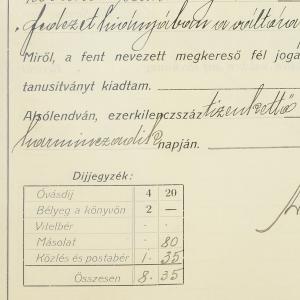 fedezet hiányában a váltóra
Miről, a fent nevezett megkereső fél jogá
tanusitványt kiadtam.
Alsólendván, ezerkilenczszáz tizenkettő
harminczadik napján.
Díjjegyzék:
Óvásdíj 4 20
Bélyeg a könyvön 2 —
Vitelbér - -
Másolat - 80
Közlés és postabér 1 · 35
Összesen 8 · 35